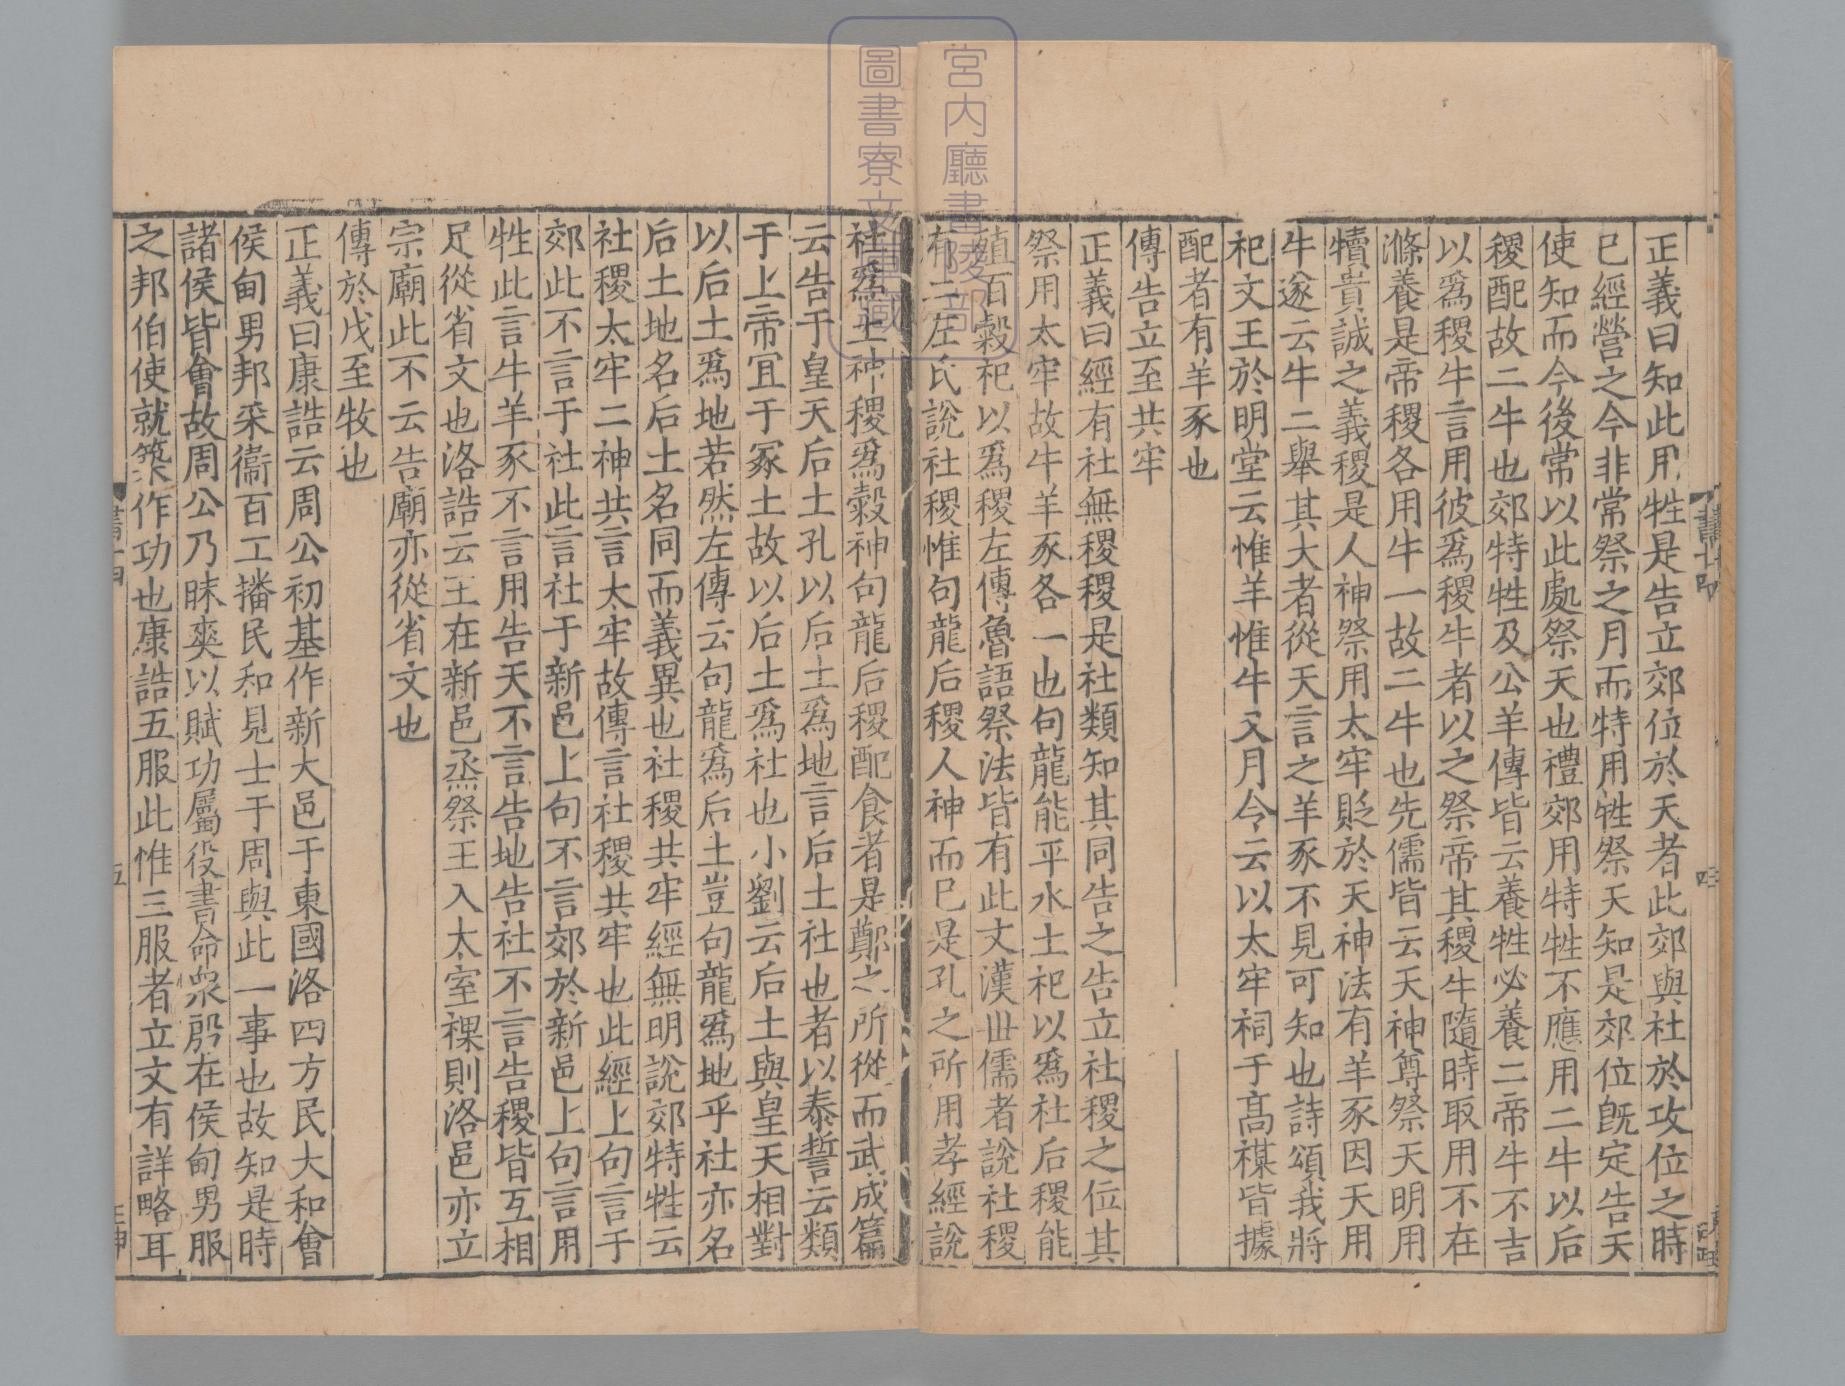 正義曰知此用牲是告立郊位於天者此郊與社於攻位之時
已經營之今非常祭之月而特用牲祭天知是郊位既定告天
使知而今後常以此處祭天也禮郊用特牲不應用二牛以后
稷配故二牛也郊特牲及公羊傳皆云養牲必養二帝牛不吉
以爲稷牛言用彼爲稷牛者以之祭帝其稷牛隨時取用不在
滌養是帝稷各用牛一故二牛也先儒皆云天神尊祭天明用
犢貴誠之義稷是人神祭用太牢貶於天神法有羊豕因天用
牛遂云牛二舉其大者從天言之羊豕不見可知也詩頌我將
祀文王於明堂云惟羊惟牛又月令云以太牢祠于高禖皆據
配者有羊豕也
傳告立至共牢
正義曰經有社無稷稷是社類知其同告之告立社稷之位其
祭用太牢故牛羊豕各一也句龍能平水土祀以爲社后稷能
殖百穀祀以爲稷左傳魯語祭法皆有此文漢世儒者說社稷
有二左氏說社稷惟句龍后稷人神而已是孔之所用孝經說
社爲土神稷爲穀神句龍后稷配食者是鄭之所從而武成篇
云告于皇天后土孔以后土爲地言后土社也者以泰誓云類
于上帝宜于冢土故以后土爲社也小劉云后土與皇天相對
以后土爲地若然左傳云句龍爲后土豈句龍爲地乎社亦名
后土地名后土名同而義異也社稷共牢經無明說郊特牲云
社稷太牢二神共言太牢故傳言社稷共牢也此經上句言于
郊此不言于社此言社于新邑上句不言郊於新邑上句言用
牲此言牛羊豕不言用告天不言告地告社不言告稷皆互相
足從省文也洛誥云王在新邑烝祭王入太室祼則洛邑亦立
宗廟此不云告廟亦從省文也
傳於戊至牧也
正義曰康誥云周公初基作新大邑于東國洛四方民大和會
侯甸男邦采衞百工播民和見士于周與此一事也故知是時
諸侯皆會故周公乃昧爽以賦功屬役書命衆殷在侯甸男服
之邦伯使就築作功也康誥五服此惟三服者立文有詳略耳
宮内廳書陵部
圖書寮文庫藏